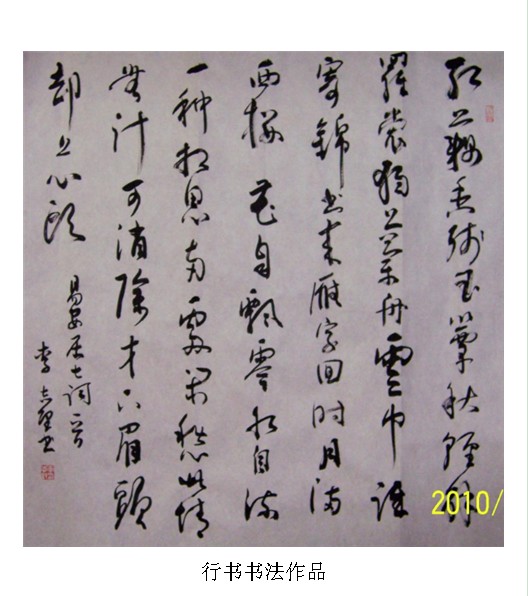 红藕香残玉簟秋轻解
羅裳獨上兰舟雲中誰
寄錦书来雁字回时月满
西楼花自飘零水自流
一种相思两處闲愁此情
無计可消除才下眉頭
却上心头
易安居士词
李
2010/
行书书法作品